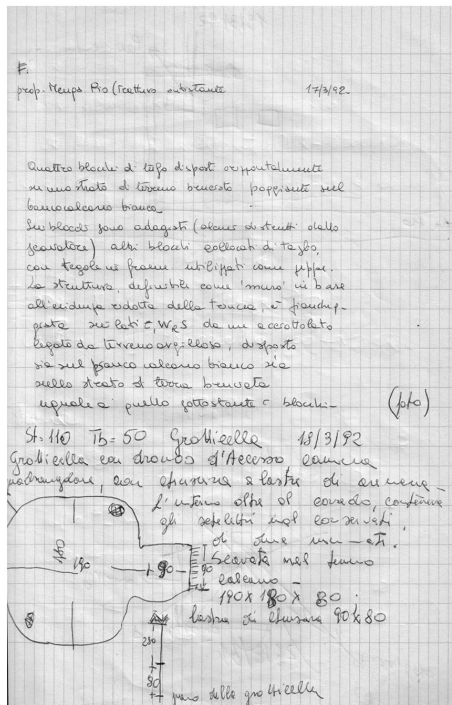 F.
prop. Menga Pio (Trattura antistante 17/3/92
Quattro blocchi di tufo disposti orizzontalmente
su uno strato di terreno brunato poggiante sul
banco calcareo bianco
Sui blocchi sono adagiati (alcuni distrutti dallo
scavatore) altri blocchi collocati di taglio,
con tegole in framm. utilizzati come zeppe.
La struttura, definibile come "muro" in base
all'evidenza ridotta della trincea, è fiancheg-
giata sui lati E, W e S da un acciottolato
legato da terreno argilloso, disposto
sia sul banco calcareo bianco sia
sullo strato di terra brunata
uguale a quello sottostante i blocchi -
(foto)
St. 110 Tb = 50 Grotticella 18/3/92
Grotticella con dromos d'Accesso camera
quadrangolare, con chiusura a lastre di
L'interno oltre al corredo, conteneva
gli scheletri mal conservati,
di due
Scavata nel banco
calcareo -
190 x 180 x 80
lastra di chiusura 90 x 80
190
90
90
230
80
piano della grotticella